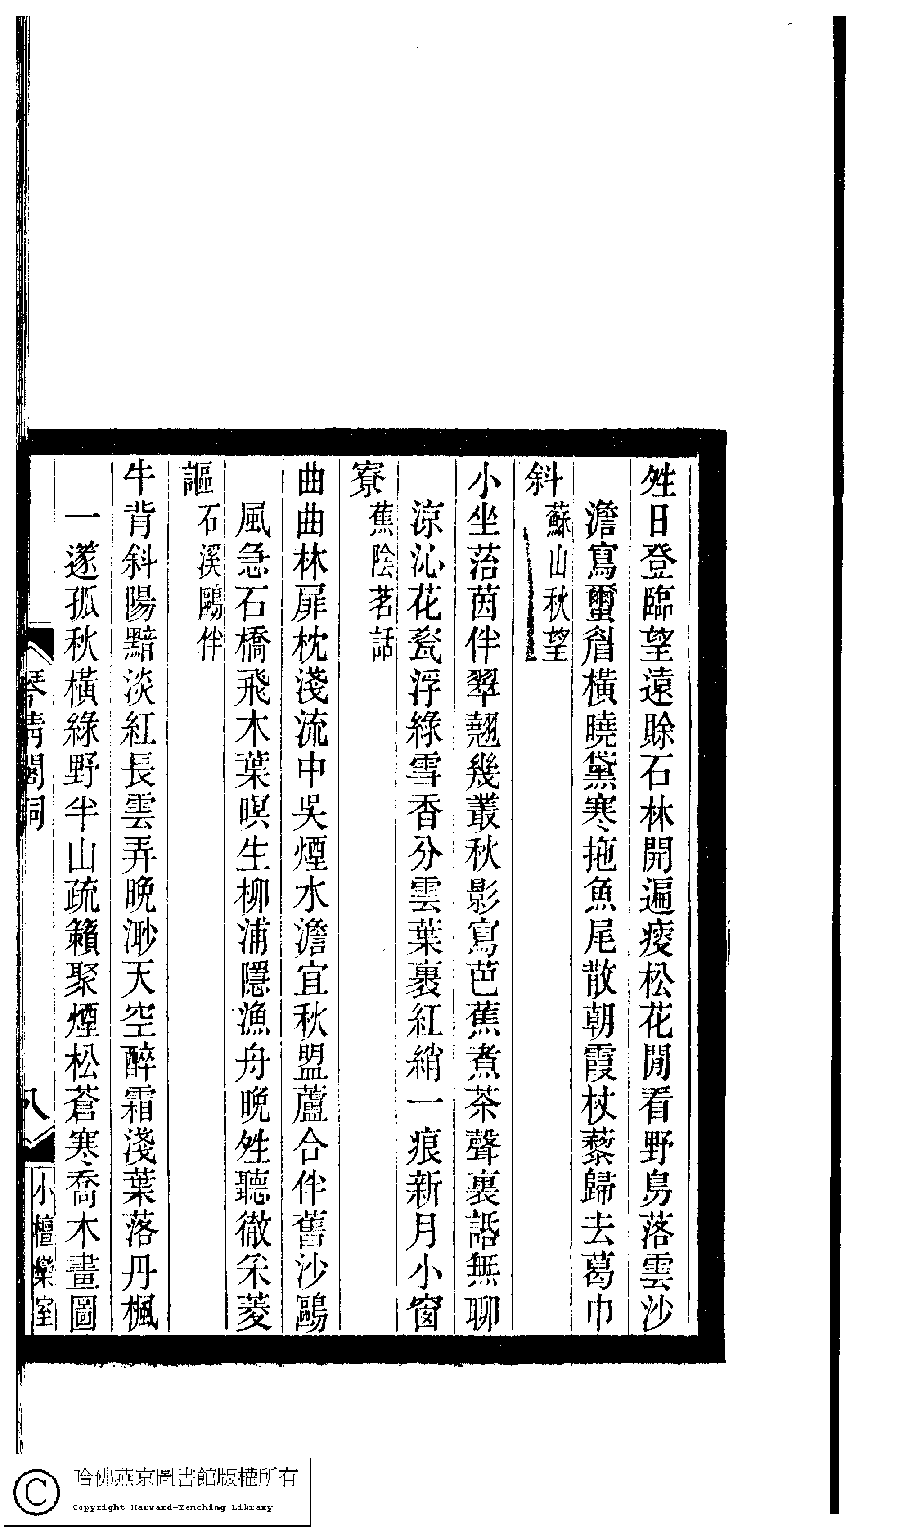 甡日登臨望遠賒石林開遍瘦松花閒看野鳥落雲沙
澹寫蠒眉橫曉黛寒拖魚尾散朝霞杖藜歸去葛巾
斜蘇山秋望
小坐萿茵伴翠翹幾叢秋影寫芭蕉煮茶聲裏話無聊
涼沁花甆浮綠雪香分雲葉裹紅綃一痕新月小窗
寮蕉陰茗話
曲曲林扉枕淺流中吳煙水澹宜秋盟蘆合伴舊沙鷗
風急石橋飛木葉暝生柳浦隱漁舟晚甡聽徹采菱
謳石溪鷗伴
牛背斜陽黯淡紅長雲弄晚渺天空醉霜淺葉落丹楓
一邃孤秋橫綠野半山疏籟聚煙松蒼寒喬木畫圖
琴清閣詞
八
小檀欒室
哈佛燕京圖書館版權所有
Copyright Harvard-Yenching Library